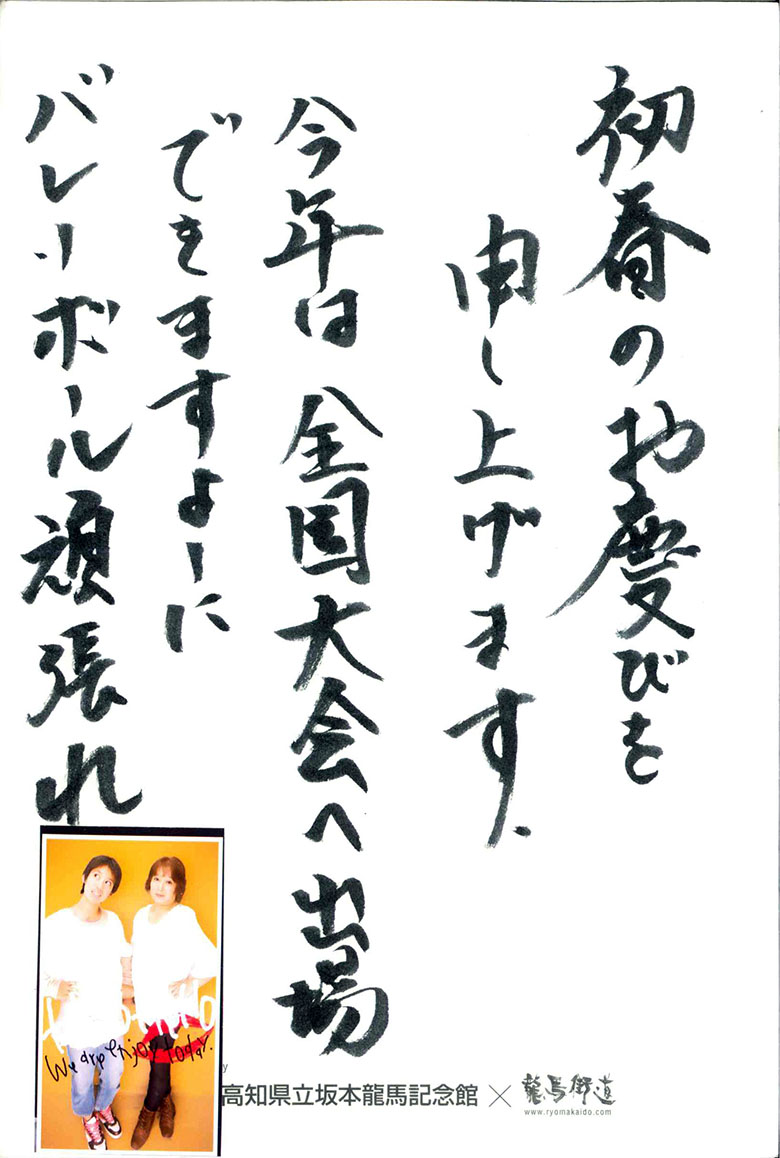 初春のお慶びを
申し上げます.
今年は全国大会へ出場
できますよーに
バレーボール頑張れ
We are enjoy today.
高知県立坂本龍馬記念館×龍馬街道
www.ryomakaido.com